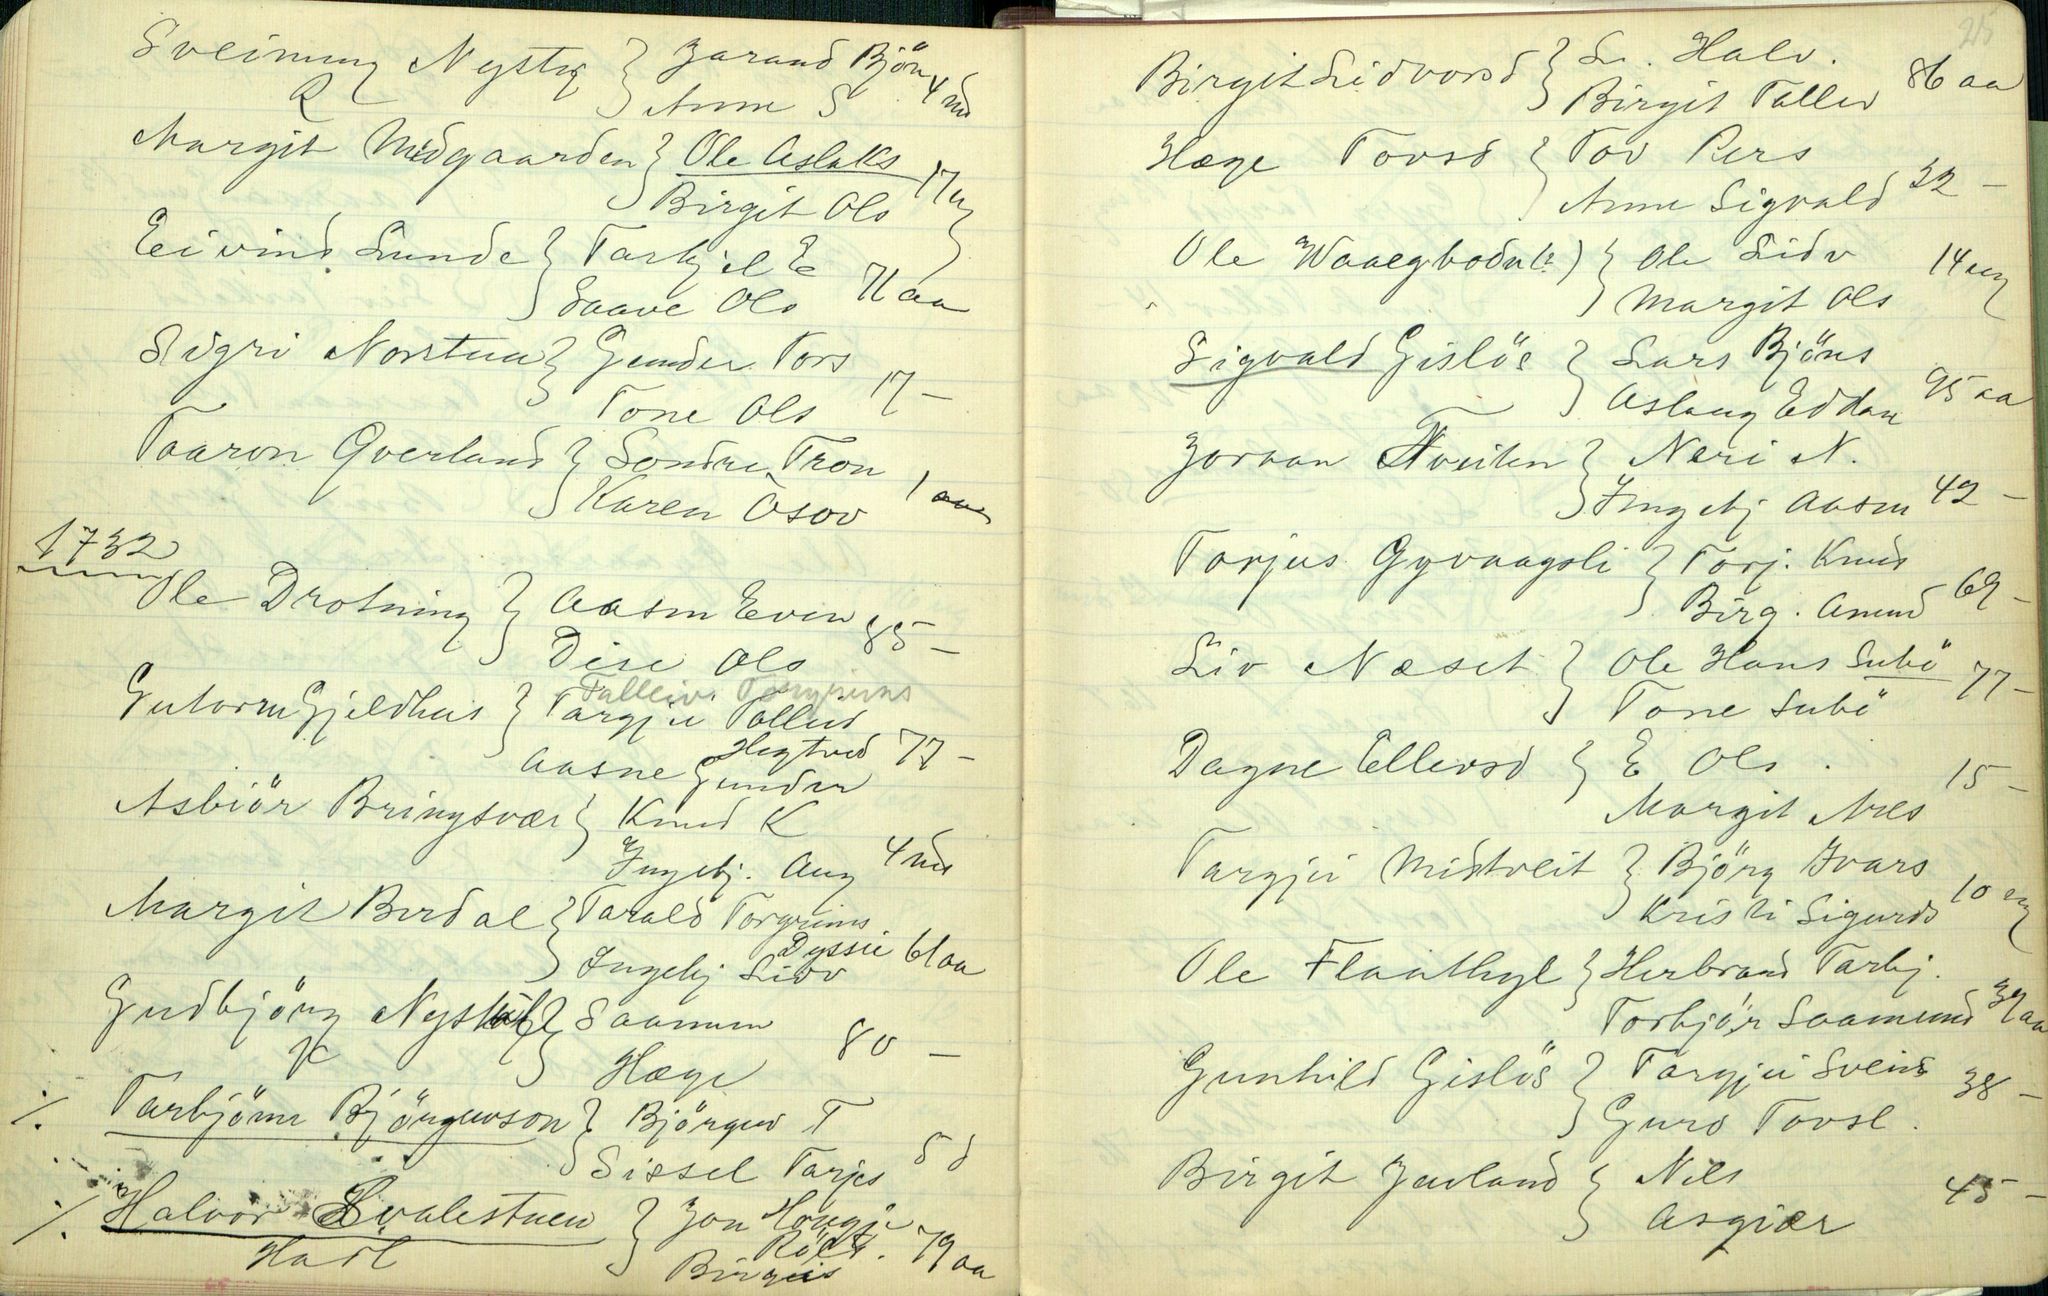 Sveinung Nystg } Jarand Bjön 4 md
R Anne S
Margit Midgaarden } Ole Aslaks 17 ug
Birgit Ols
Eivind Lunde } Tarkjel E 71 aa
Saave Ols
Sigri Norstuu } Gunder Tors 17 –
Tone Ols
Taaron Qverland } Sondre Tron 1 aa
Karen Osov
1732
Ole Drotning } Aasm Even 85 –
Dise Ols
Talleiv Torgrims
Gutorm Gjeldhus } Targju Tollud
Aasne Gunder Hegtved 77 –
Asbiör Bringsvær } Knud K
Ingebj. Aug 4 md
Margit Berdal } Tarald Torgrims
Ingebj Lidv Dyssie 61 aa
Gudbjörg Nystul } Saamun 80 –
Hæge
% Tarbjörn Bjørgusson } Björgus T 5 d
Sissel Tarjes
% Halvor Hvalestuen } Jon Hougj 79 aa
Hadl Birgis
25
Birgit Lidvorsd } L. Halv. 86 aa
Birgit Tallev
Hæge Tovsd } Tov Pers 32 –
Anne Sigvald
Ole Waaegbodn (?) } Ole Lidv 14 ug
Margit Ols
Sigvald Gislös } Lars Bjöns 95 aa
Aslaug Eddan
Joraan Tveiten } Neri N. 42 –
Ingebj Aasm
Torjus Gyvaagsli } Torj. Knud 69 –
Birg. Amund
Liv Næset } Ole Hans Subö 77 –
Tone Subö
Dagne Ellevsd } E Ols. 15 –
Margit Nils
Targjei Midtveit } Björg Ivars 10 ug
Kristi Sigurds
Ole Flaathyl } Herbrand Tarbj.
Torbjör Saamund 39 aa
Gunhild Gislös } Targjei Sveins 38 –
Guro Tovsl.
Birgit Juvland } Nils 45 –
Asgiær